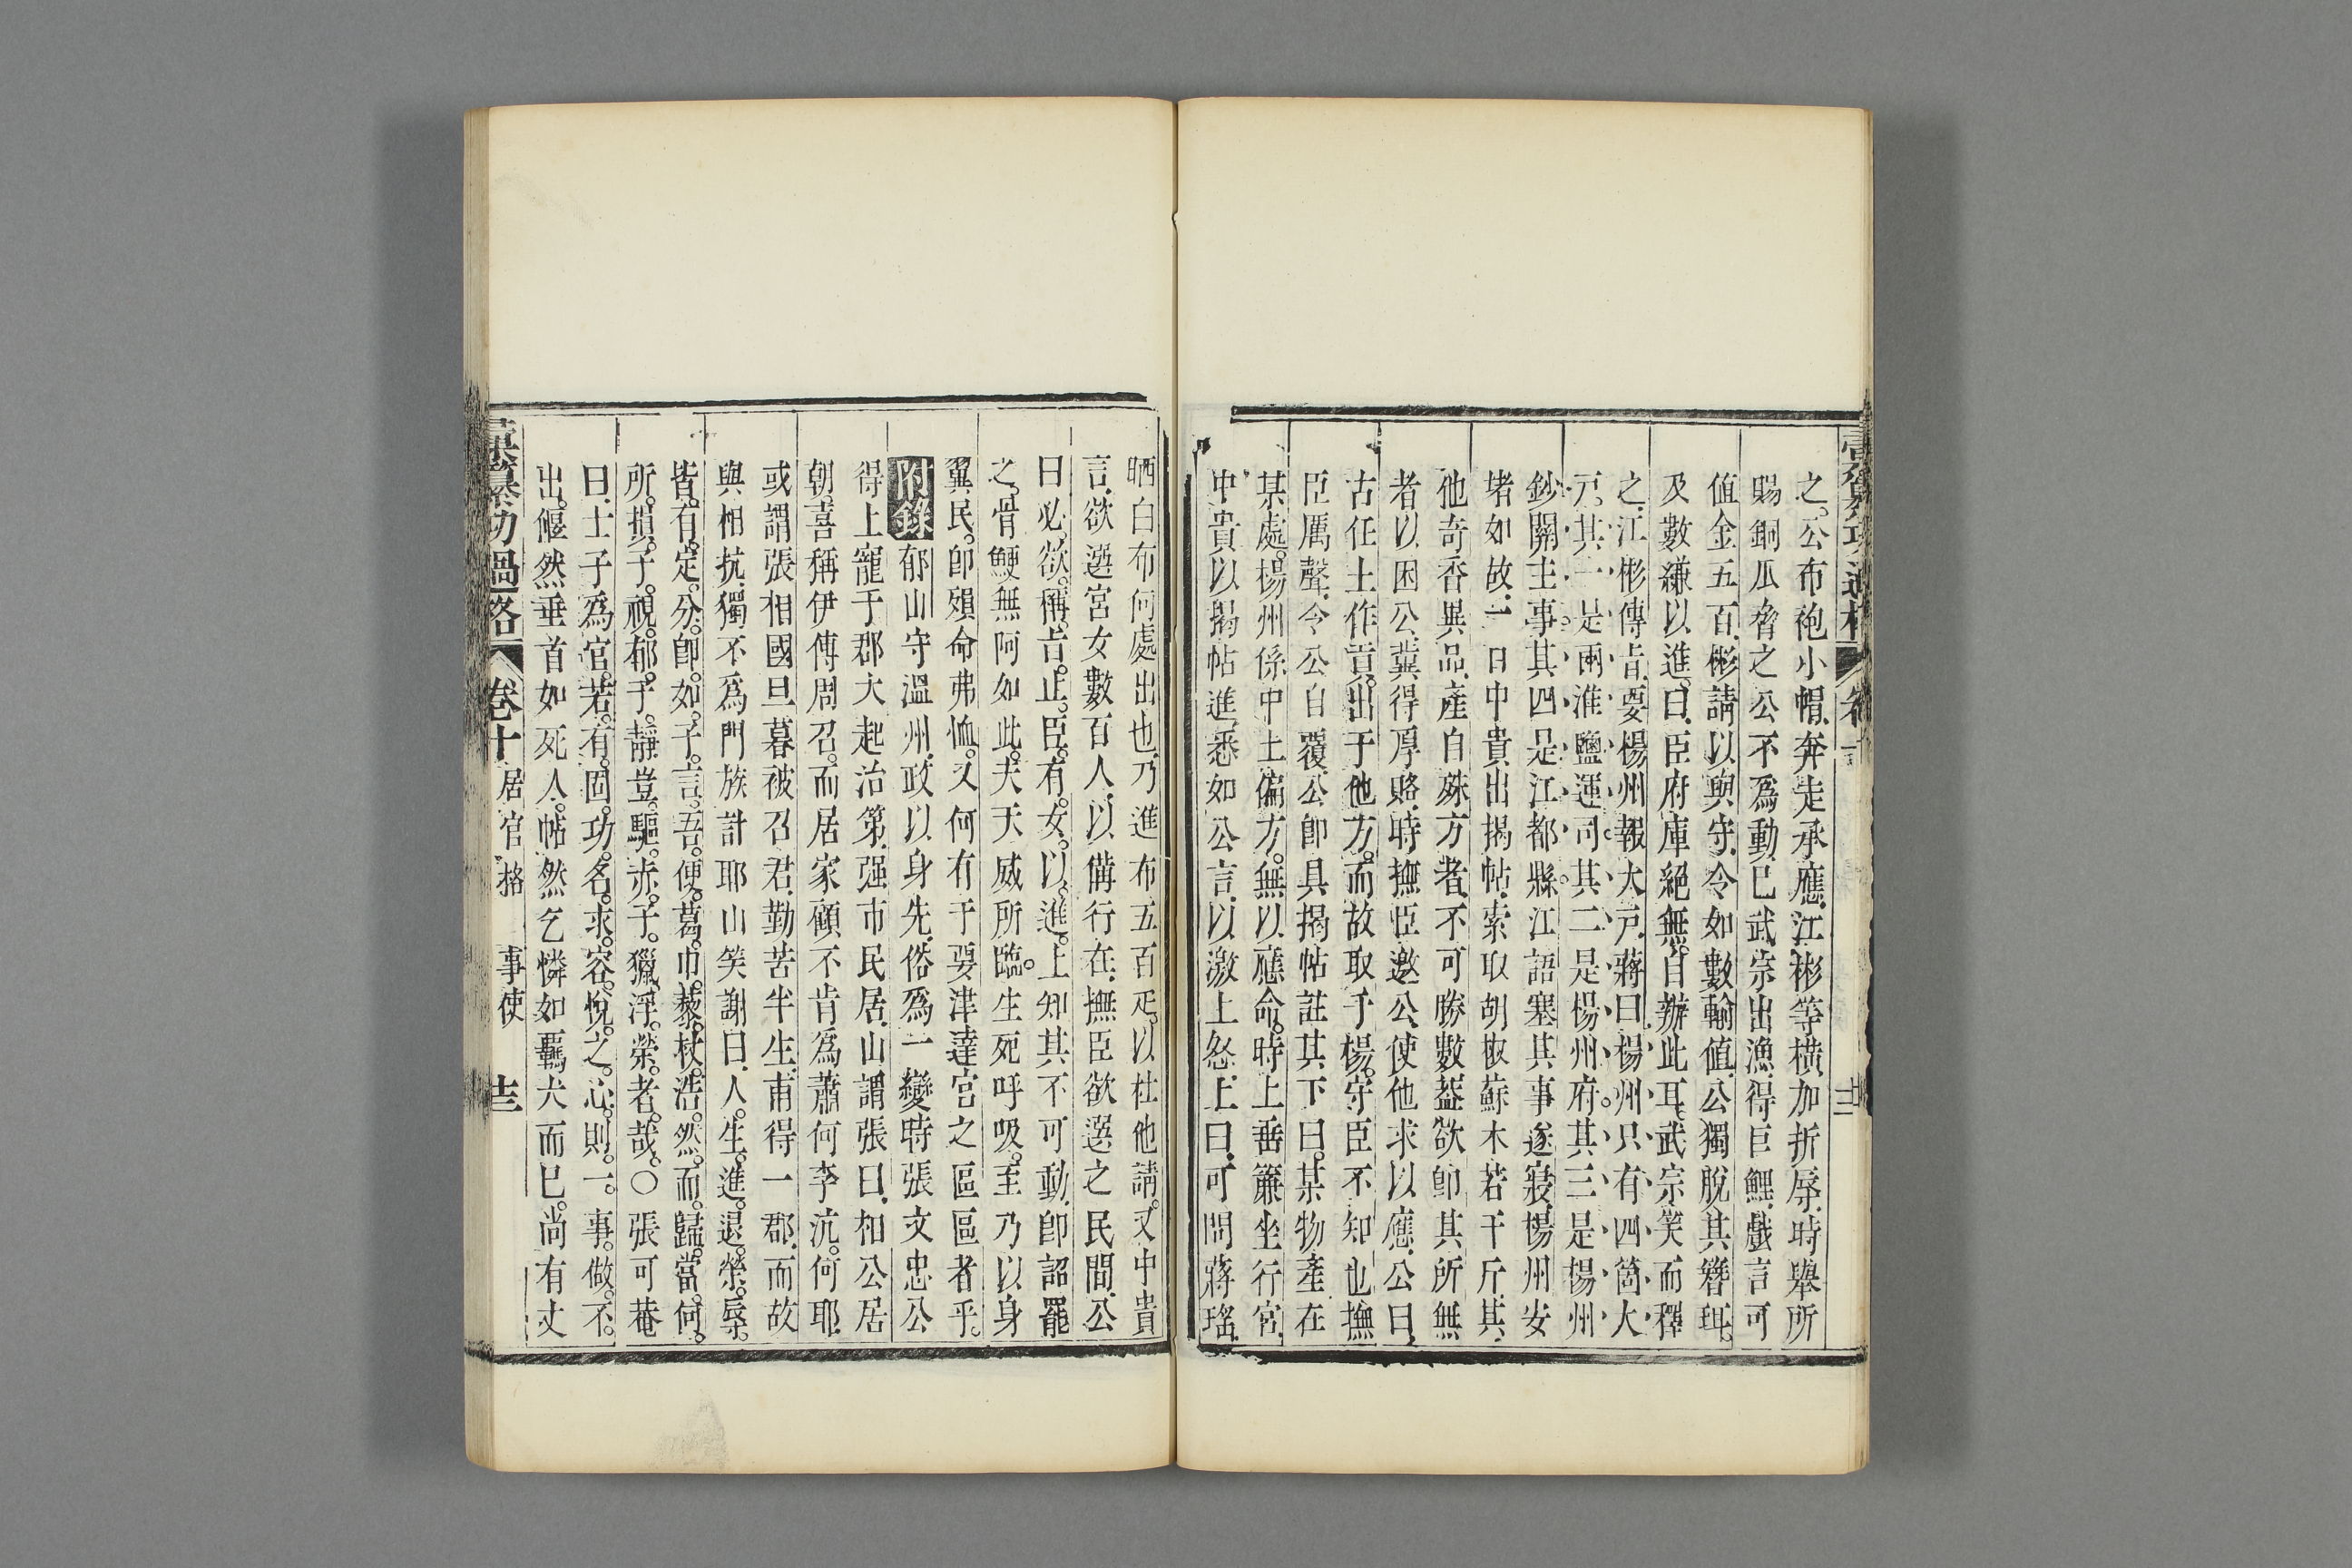 之。公布袍小帽。奔走承應。江彬等橫加折辱。時舉所
賜銅瓜脅之公不爲動。已武宗出漁。得巨鯉。戲言可
値金五百。彬請以與守。令如數輸値。公獨脫其簪珥。
及數縑以進。曰。臣府庫絕無。自辦此耳。武宗笑而釋
之。江彬傳旨。要楊州報大戶。蔣曰。楊州只有四箇大
戶。其一是兩淮鹽運司。其二是楊州府。其三是楊州
鈔關主事。其四是江都縣。江語塞。其事遂寢。楊州安
堵如故。一日中貴出揭帖。索取胡椒蘇木若干斤。其
他奇香異品。產自殊方者。不可勝數。蓋欲卽其所無
者以困公。冀得厚賂。時撫臣邀公。使他求以應。公曰。
古任土作貢。出于他方。而故取于楊。守臣不知也。撫
臣厲聲。令公自覆。公卽具揭帖註其下曰。某物產在
某處。楊州係中土偏方。無以應命。時上垂簾坐行宮。
中貴以揭帖進。悉如公言。以激上怒。上曰。可問蔣瑤。
晒白布何處出也。乃進布五百疋。以杜他請。又中貴
言。欲選宮女數百人。以備行在。撫臣欲選之民間。公
曰。必欲稱旨。止臣有女以進。上知其不可動。卽詔罷
之。骨鯁無阿如此。夫天威所臨。生死呼吸。至乃以身
翼民。卽殞命弗恤。又何有于要津達宦之區區者乎。
附錄 郁山守溫州。政以身先。俗爲一變。時張文忠公
得上寵于郡大起治第。强市民居。山謂張曰。相公居
朝。喜稱伊傅周召。而居家顧不肯爲蕭何李沆。何耶。
或謂張相國旦暮被召。君勤苦半生。甫得一郡。而故
與相抗。獨不爲門族計耶。山笑謝曰。人生進退榮辱。
皆有定分。卽如子言。吾便葛巾藜杖。浩然而歸。當何
所損。子視郁子靜。豈驅赤子。獵浮榮者哉。○張可菴
曰。士子爲官。若有固功名求容悅之心。則一事做不
出。偃然垂首如死人。帖然乞憐如羈犬而已。尚有丈
彙纂功過格 卷十 居官格 事使 廿三